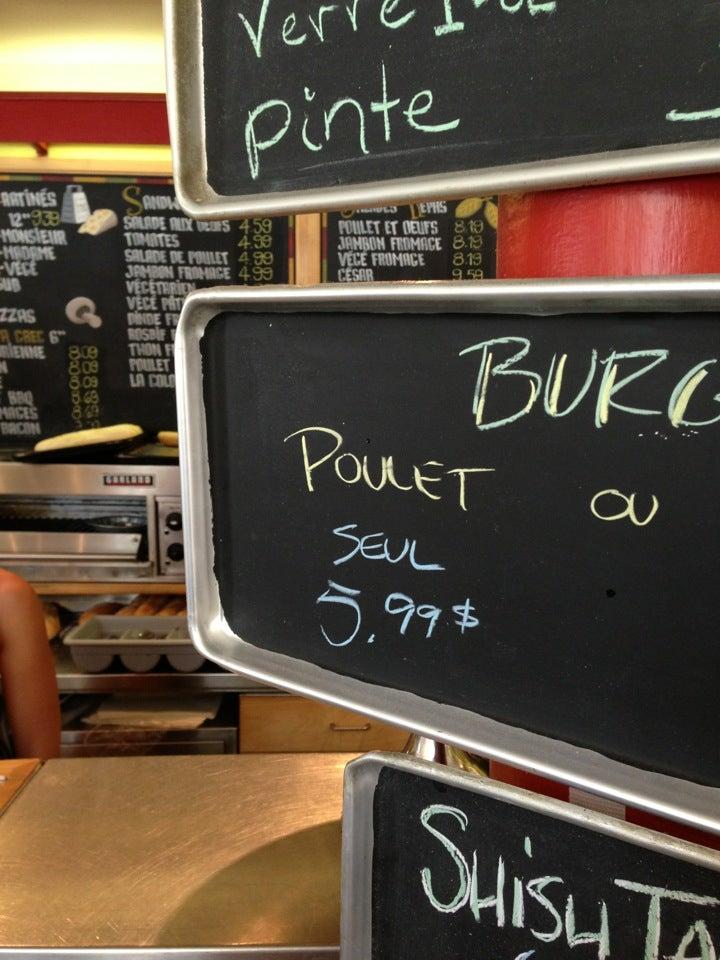 pinte
BURG
POULET OU
SEUL
5.99$
SHISH TA
SALADE AUX OEUFS 4.59
TOMATES 4.99
SALADE DE POULET 4.99
JAMBON FROMAGE 4.99
VÉGÉTARIEN
VÉGÉ
THON
POULET
LA COLO
POULET ET OEUFS 8.19
JAMBON FROMAGE 8.19
VÉGÉ FROMAGE 8.19
CÉSAR 9.59
RATINÉS
12" 9.39
MONSIEUR
MADAME
VÉGÉ
ZZAS
6"
8.09
8.09
8.09
BBQ 8.69
MAGES 8.69
BACON
GARLAND